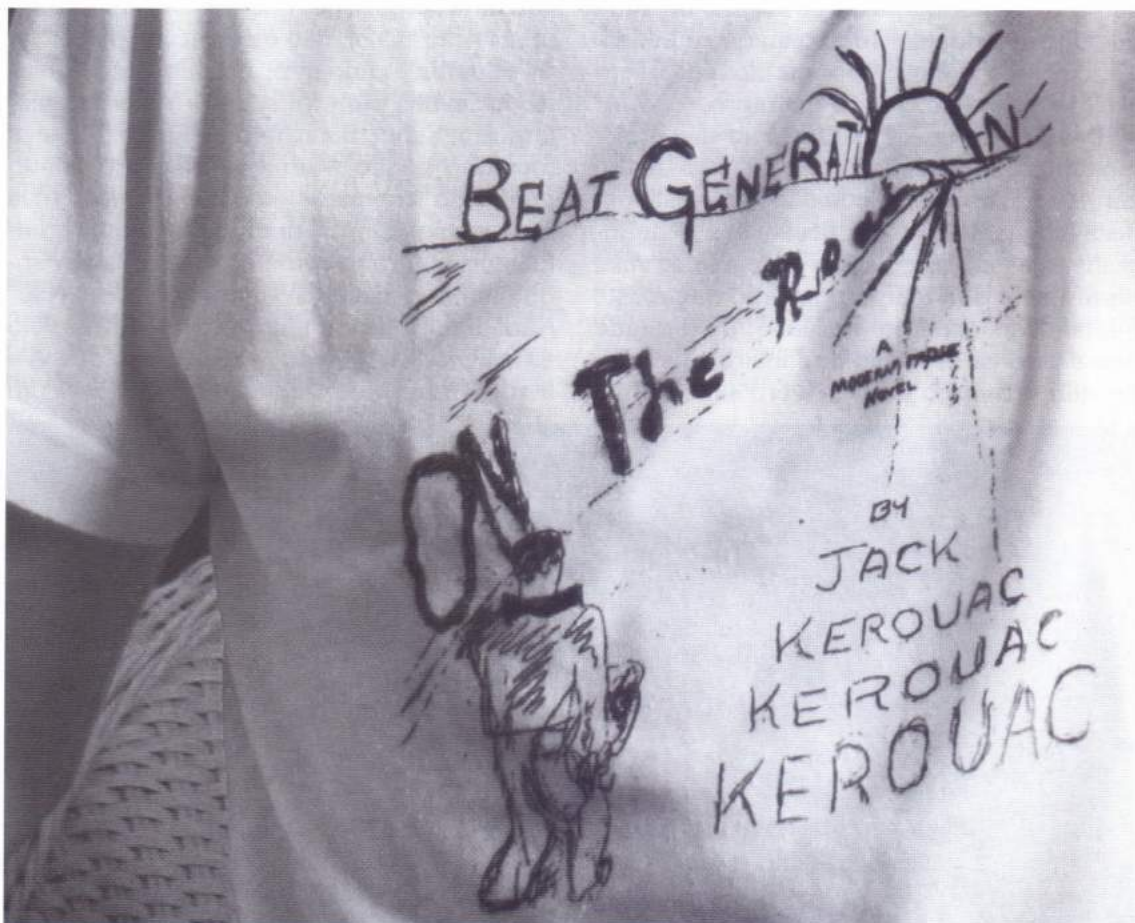 BEAT GENERATION
ON The Road
A
MODERN PROSE
NOVEL
BY
JACK
KEROUAC
KEROUAC
KEROUAC